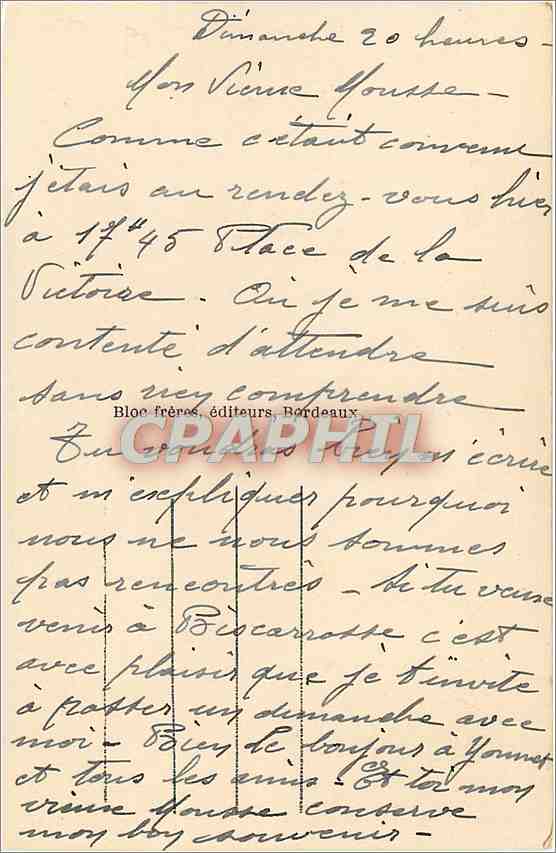 Dimanche 20 heures -
Mon Vieux Mousse -
Comme c'était convenu
j'étais au rendez-vous hier
à 17H 45 Place de la
Victoire. Où je me suis
contenté d'attendre
sans rien comprendre
Bloc frères, éditeurs, Bordeaux
CPAPHIL
Tu voudras bien m'écrire
et m'expliquer pourquoi
nous ne nous sommes
pas rencontrés - Si tu veux
venir à Biscarrosse c'est
avec plaisir que je t'invite
à passer un dimanche avec
moi - Bien le bonjour à
et tous les amis - Et toi mon
vieux Mousse conserve
mon bon souvenir -